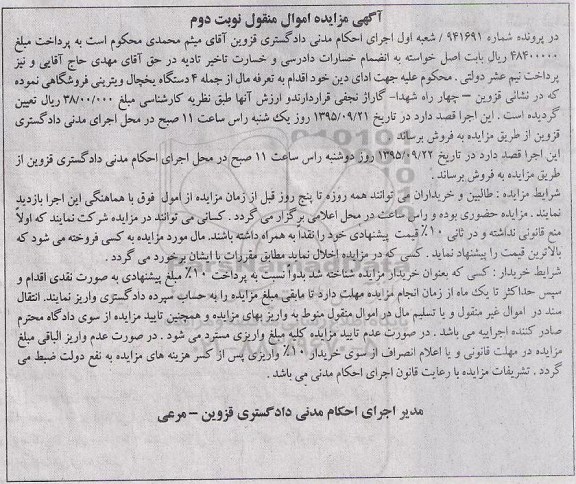 آگهی مزایده اموال منقول نوبت دوم
در پرونده شماره ۹۴۱۶۹۱ / شعبه اول اجرای احکام مدنی دادگستری قزوین آقای میثم محمدی محکوم است به پرداخت مبلغ
۴۸۴۰۰۰۰۰ ریال بابت اصل خواسته به انضمام خسارات دادرسی و خسارت تاخیر تادیه در حق آقای مهدی حاج آقایی و نیز
پرداخت نیم عشر دولتی . محکوم علیه جهت ادای دین خود اقدام به تعرفه مال از جمله ۴ دستگاه یخچال ویترینی فروشگاهی نموده
که در نشانی قزوین – چهار راه شهدا- گاراژ نجفی قراردارندو ارزش آنها طبق نظریه کارشناسی مبلغ ۳۸/۰۰۰/۰۰۰ ریال تعیین
گردیده است . این اجرا قصد دارد در تاریخ ۱۳۹۵/۰۹/۲۱ روز یك شنبه راس ساعت ۱۱ صبح در محل اجرای مدنی دادگستری
قزوین از طریق مزایده به فروش برساند
این اجرا قصد دارد در تاریخ ۱۳۹۵/۰۹/۲۲ روز دوشنبه راس ساعت ۱۱ صبح در محل اجرای احکام مدنی دادگستری قزوین از
طریق مزایده به فروش برساند .
شرایط مزایده : طالبین و خریداران می توانند همه روزه تا پنج روز قبل از زمان مزایده از اموال فوق با هماهنگی این اجرا بازدید
نمایند . مزایده حضوری بوده و راس ساعت در محل اعلامی برگزار می گردد . کسانی می توانند در مزایده شرکت نمایند که اولاً
منع قانونی نداشته و در ثانی ۱۰٪ قیمت پیشنهادی خود را نقداً به همراه داشته باشند. مال مورد مزایده به کسی فروخته می شود که
بالاترین قیمت را پیشنهاد نماید . کسی که در مزایده اخلال نماید مطابق مقررات با ایشان برخورد می گردد .
شرایط خریدار : کسی که بعنوان خریدار مزایده شناخته شد بدواً نسبت به پرداخت ۱۰٪ مبلغ پیشنهادی به صورت نقدی اقدام و
سپس حداکثر تا یك ماه از زمان انجام مزایده مهلت دارد تا مابقی مبلغ مزایده را به حساب سپرده دادگستری واریز نمایند. انتقال
سند در اموال غیر منقول و یا تسلیم مال در اموال منقول منوط به واریز بهای مزایده و همچنین تایید مزایده از سوی دادگاه محترم
صادر کننده اجراییه می باشد . در صورت عدم تایید مزایده کلیه مبلغ واریزی مسترد می شود . در صورت عدم واریز الباقی مبلغ
مزایده در مهلت قانونی و یا اعلام انصراف از سوی خریدار ۱۰٪ واریزی پس از کسر هزینه های مزایده به نفع دولت ضبط می
گردد . تشریفات مزایده با رعایت قانون اجرای احکام مدنی می باشد .
مدیر اجرای احکام مدنی دادگستری قزوین – مرعی